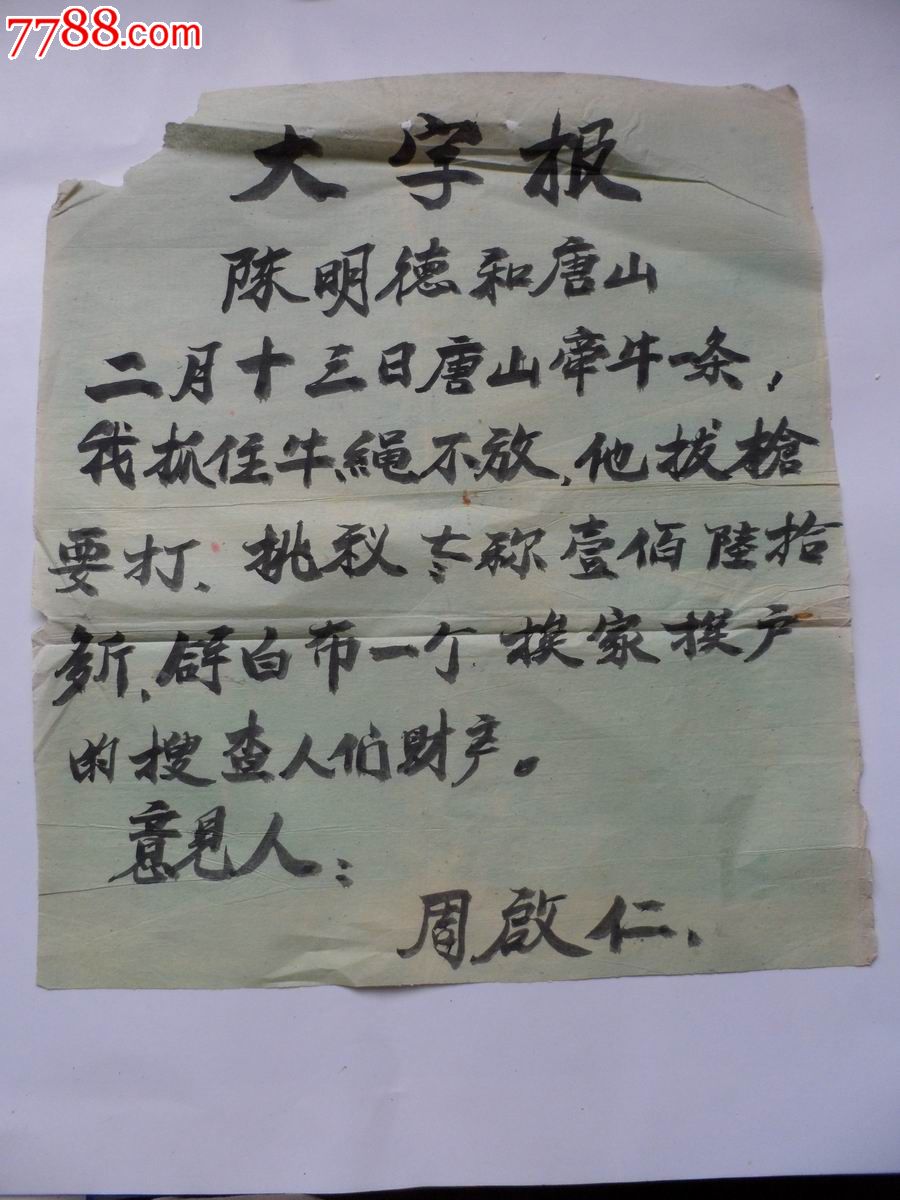 7788.com
大字报
陈明德和唐山
二月十三日唐山牵牛一条,
我抓住牛绳不放,他拔槍
要打、挑秋 称壹佰陸拾
多斤,白布一个 挨家挨户
的搜查人们财产。
意見人:
周啟仁、